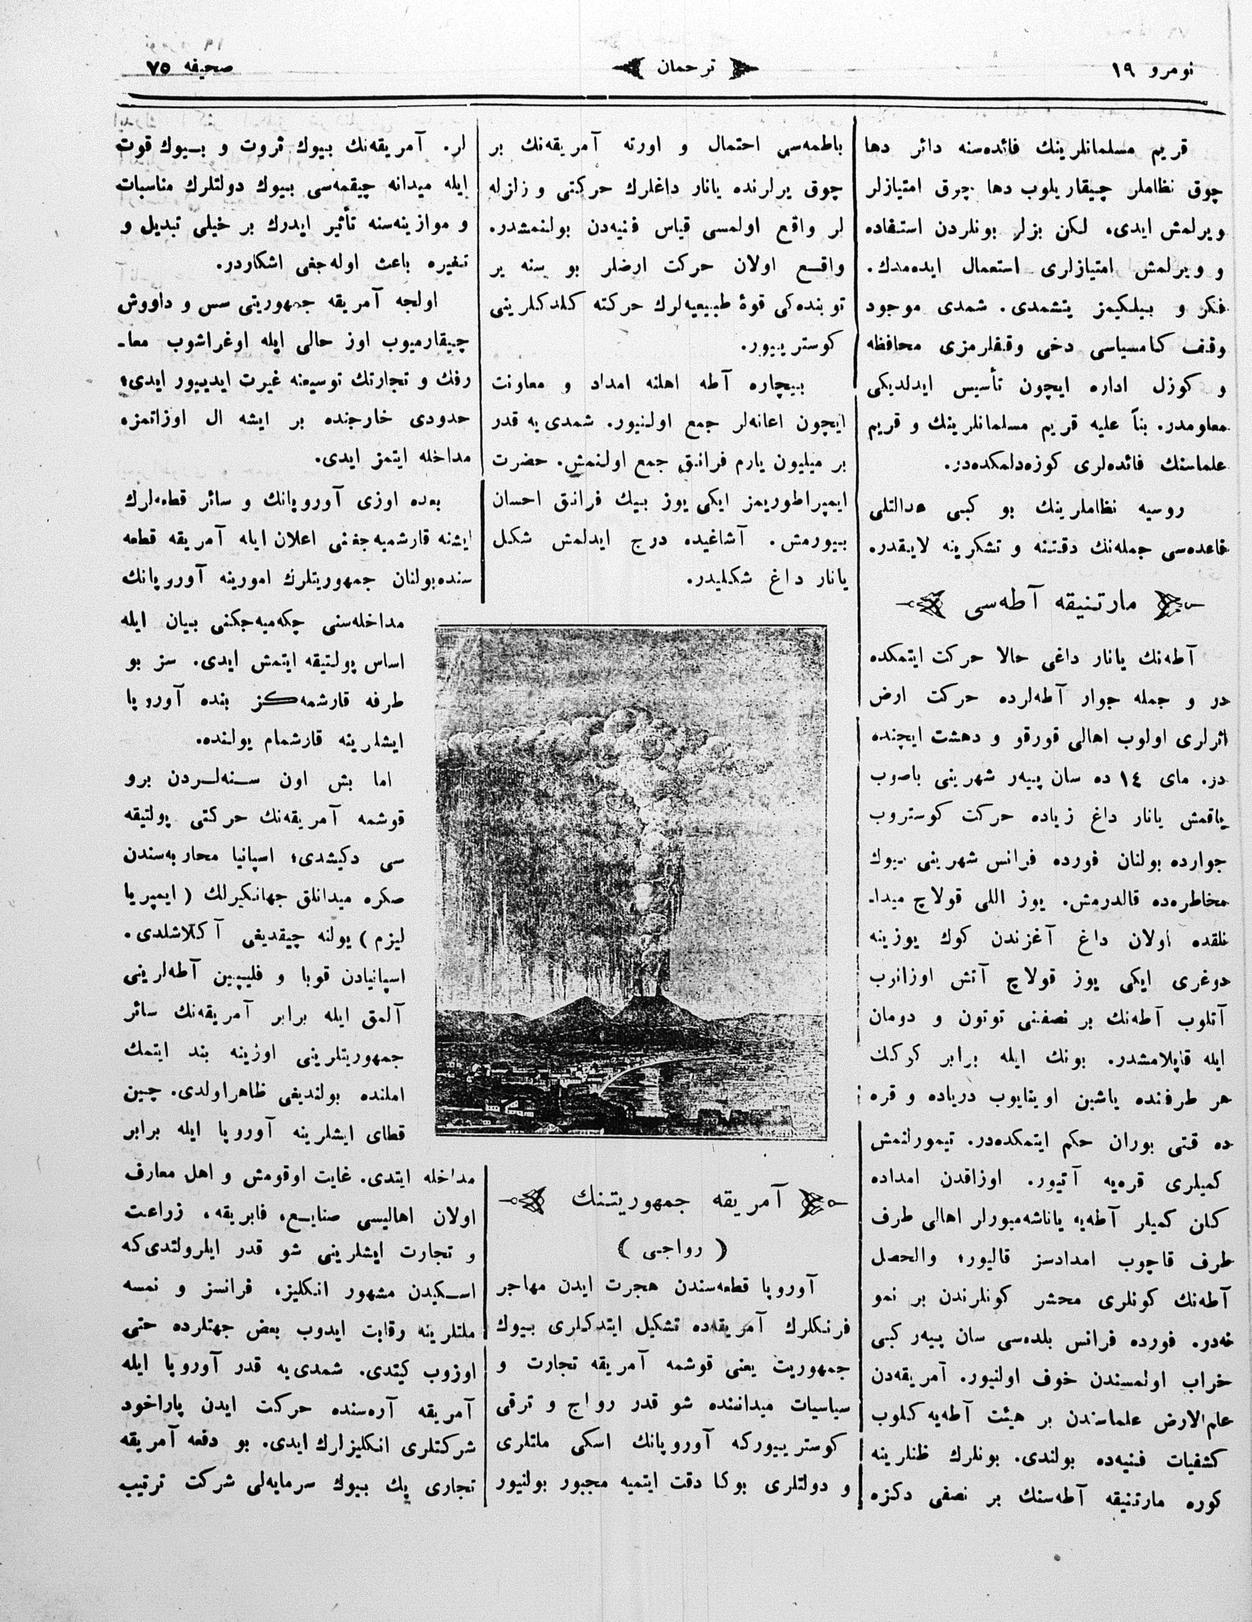 نومرو ١٩
ترجمان
صحیفه ٧٥
قریم مسلمانلرینك فائده‌سنه دائر دها
چوق نظاملر چیقاریلوب دها چوق امتیازلر
ویرلمش ایدی، لکن بزلر بونلردن استفاده
و ویرلمش امتیازلری استعمال ایده‌مدك.
فکر و بیلکیمز یتشمدی. شمدی موجود
وقف کامسیاسی دخی وقفلرمزی محافظه
و کوزل اداره ایچون تأسیس ایدلدیکی
معلومدر. بناً علیه قریم مسلمانلرینك و قریم
علماسنك فائده‌لری کوزه‌دلمکده‌در.
روسیه نظاملرینك بو کبی عدالتلی
قاعده‌سی جمله‌نك دقتنه و تشکرینه لایقدر.
مارتنیقه آطه‌سی
آطه‌نك یانار داغی حالا حرکت ایتمکده
در و جمله جوار آطه‌لرده حرکت ارض
اثرلری اولوب اهالی قورقو و دهشت ایچنده
در. مای ١٤ ده سان پییر شهرینی باصوب
یاقمش یانار داغ زیاده حرکت کوستروب
جوارده بولنان فورده فرانس شهرینی بیوك
مخاطره‌ده قالدرمش. یوز اللی قولاچ میدا-
نلقده اولان داغ آغزندن کوك یوزینه
دوغری ایکی یوز قولاچ آتش اوزانوب
آتلوب آطه‌نك بر نصفنی توتون و دومان
ایله قاپلامشدر. بونك ایله برابر کوکك
هر طرفنده یاشین اوینایوب دریاده و قره
ده قتی بوران حکم ایتمکده‌در. تیمورلنمش
کمیلری قره‌یه آتیور. اوزاقدن امداده
کلن کمیلر آطه‌یه یاناشه‌میورلر اهالی طرف
طرف قاچوب امدادسز قالیور؛ والحصل
آطه‌نك کونلری محشر کونلرندن بر نمو
نه‌در. فورده فرانس بلده‌سی سان پییر کبی
خراب اولمسندن خوف اولنیور. آمریقه‌دن
علم‌الارض علماسندن بر هیئت آطه‌یه کلوب
کشفیات فنیه‌ده بولندی. بونلرك ظنلرینه
کوره مارتنیقه آطه‌سنك بر نصفی دکزه
باطمه‌سی احتمال و اورته آمریقه‌نك بر
چوق یرلرنده یانار داغلرك حرکتی و زلزله
لر واقع اولمسی قیاس فنیه‌دن بولنمشدر.
واقع اولان حرکت ارضلر بو سنه یر
توبنده‌کی قوهٔ طبیعیه‌لرك حرکته کلدکلرینی
کوستریبور.
بیچاره آطه اهلنه امداد و معاونت
ایچون اعانه‌لر جمع اولنیور. شمدی‌یه قدر
بر میلیون یارم فرانق جمع اولنمش. حضرت
ایمپراطوریمز ایکی یوز بیك فرانق احسان
بیورمش. آشاغیده درج ایدلمش شکل
یانار داغ شکلیدر.
آمریقه جمهوریتنك
( رواجی )
آوروپا قطعه‌سندن هجرت ایدن مهاجر
فرنکلرك آمریقاده تشکیل ایتدکلری بیوك
جمهوریت یعنی قوشمه آمریقه تجارت و
سیاسیات میداننده شو قدر رواج و ترقی
کوستریبورکه آوروپانك اسکی ملتلری
و دولتلری بوکا دقت ایتمیه مجبور بولنیور
لر. آمریقه‌نك بیوك ثروت و بیوك قوت
ایله میدانه چیقمه‌سی بیوك دولتلرك مناسبات
و موازینه‌سنه تأثیر ایدرك بر خیلی تبدیل و
تغیره باعث اوله‌جغی اشکاردر.
اولجه آمریقه جمهوریتی سس و داووش
چیقارمیوب اوز حالی ایله اوغراشوب معا-
رفك و تجارتك توسیعنه غیرت ایدییور ایدی؛
حدودی خارجنده بر ایشه ال اوزاتمزه
مداخله ایتمز ایدی.
بعده اوزی آوروپانك و سائر قطعه‌لرك
ایشنه قارشمیه‌جغنی اعلان ایله آمریقه قطعه
سنده‌بولنان جمهوریتلرك امورینه آوروپانك
مداخله‌سنی چکه‌میه‌جکنی بیان ایله
اساس پولتیقه ایتمش ایدی. سز بو
طرفه قارشمه‌کز بنده آوروپا
ایشلرینه قارشمام یولنده.
اما بش اون سنه‌لردن برو
قوشمه آمریقه‌نك حرکتی پولتیقه
سی دکیشدی؛ اسپانیا محاربه‌سندن
صکره میدانلق جهانکیرلك ( ایمپریا
لیزم ) یولنه چیقدیغی آکلاشلدی.
اسپانیادن قوبا و فلیپین آطه‌لرینی
آلمق ایله برابر آمریقه‌نك سائر
جمهوریتلرینی اوزینه بند ایتمك
املنده بولندیغی ظاهراولدی. چین
قطای ایشلرینه آوروپا ایله برابر
مداخله ایتدی. غایت اوقومش و اهل معارف
اولان اهالیسی صنایع، فابریقه، زراعت
و تجارت ایشلرینی شو قدر ایلرولتدی‌که
اسکیدن مشهور انکلیز، فرانسز و نمسه
ملتلرینه رقابت ایدوب بعض جهتلرده حتی
اوزوب کیتدی. شمدی‌یه قدر آوروپا ایله
آمریقه آره‌سنده حرکت ایدن پاراخود
شرکتلری انکلیزلرك ایدی. بو دفعه آمریقه
تجاری پك بیوك سرمایه‌لی شرکت ترتیب